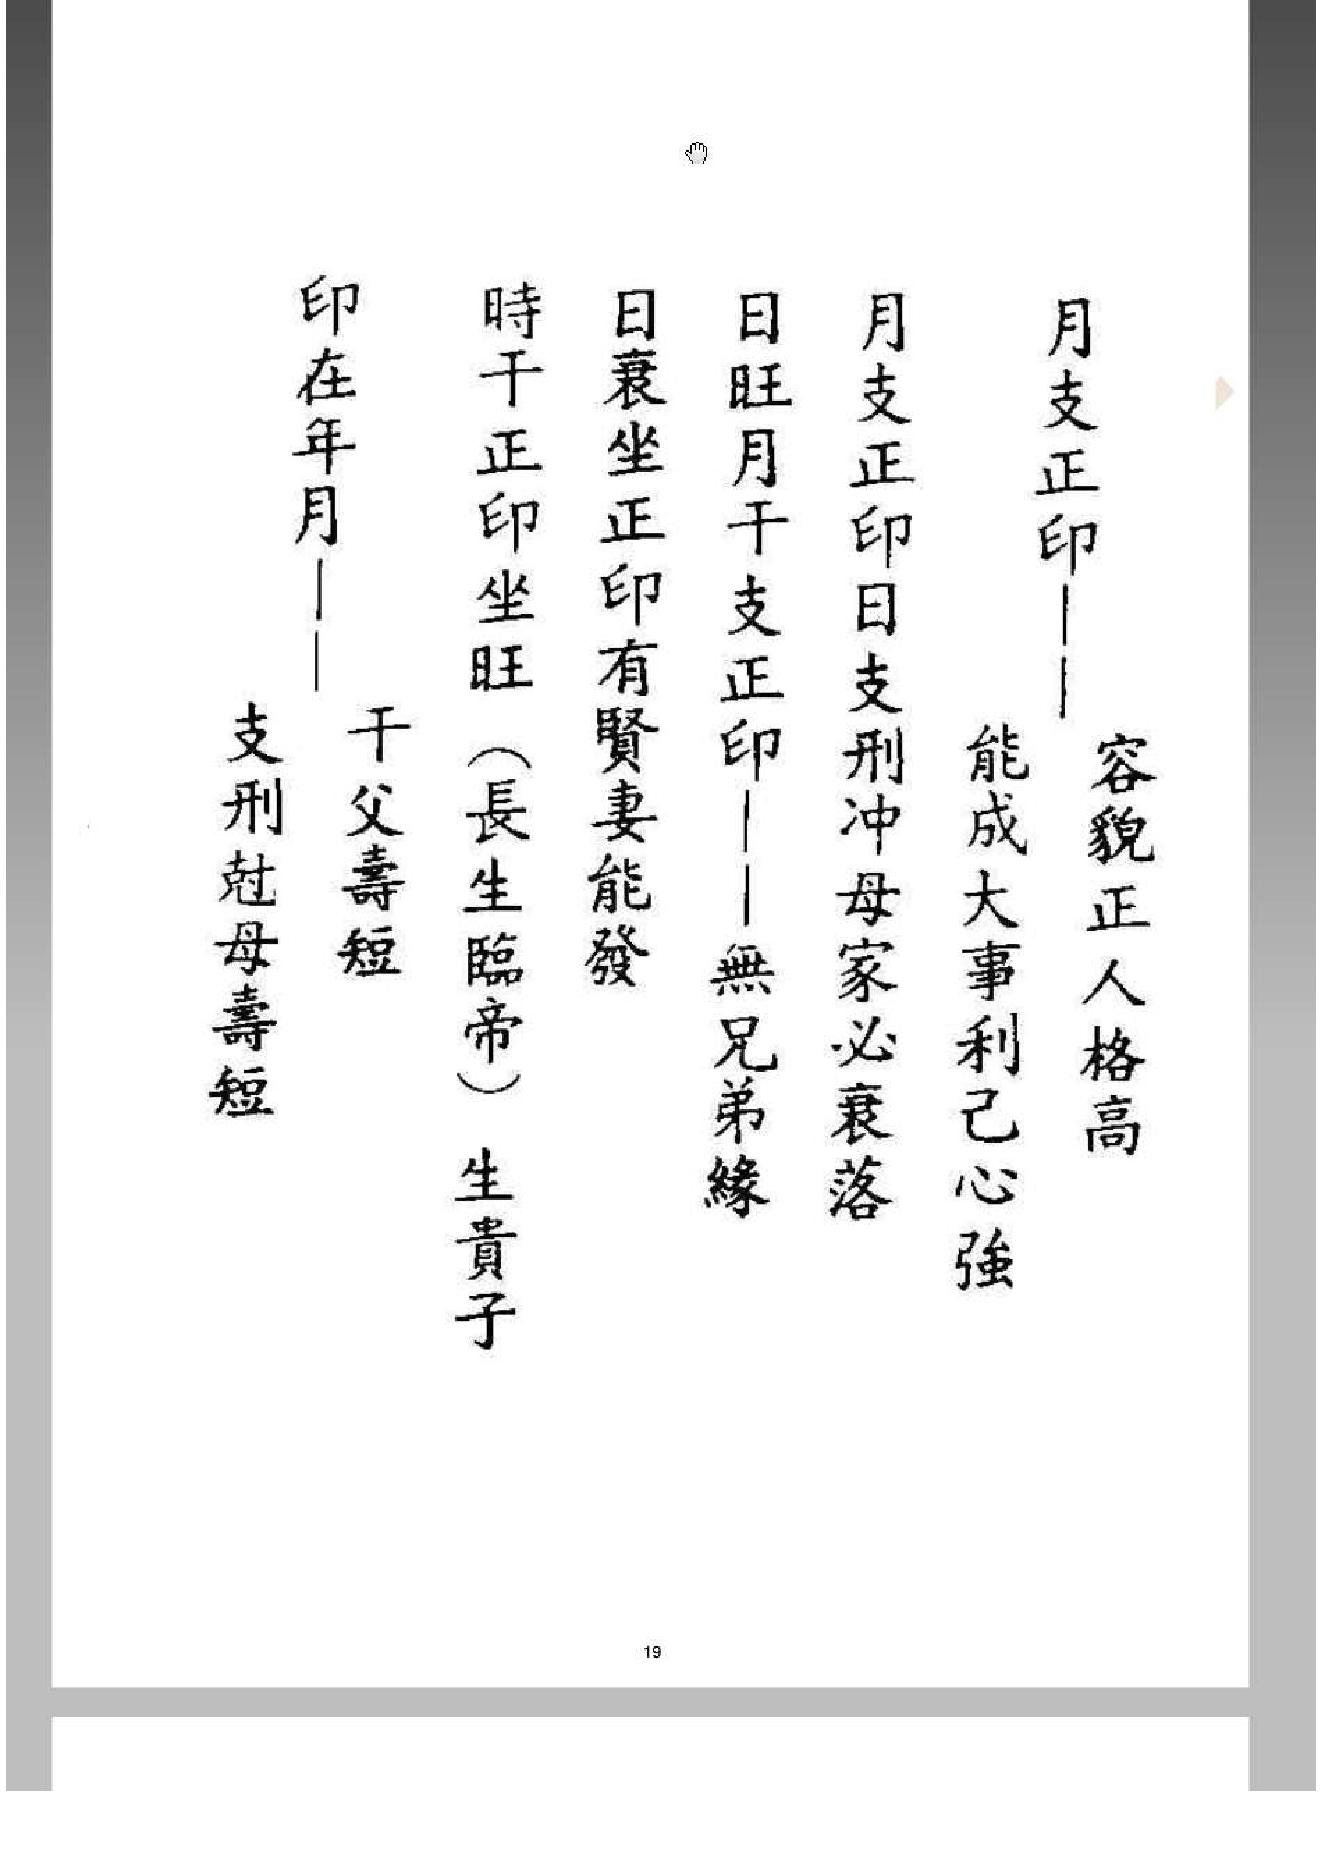 月支正印——
容貌正人格高
能成大事利己心強
月支正印日支刑冲母家必衰落
日旺月干支正印——無兄弟緣
日衰坐正印有賢妻能發
時干正印坐旺（長生臨帝）生貴子
印在年月——
干父壽短
支刑尅母壽短
19